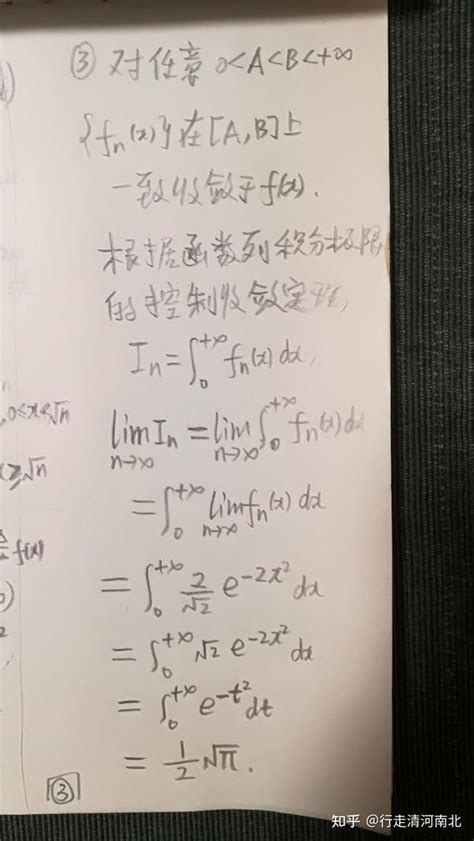 ③ 对任意 0<A<B<+∞
{fₙ(x)} 在[A,B]上
一致收敛于f(x).
根据函数列积分极限
的控制收敛定理,
Iₙ=∫₀^{+∞} fₙ(x)dx,
lim_{n→∞} Iₙ = lim_{n→∞} ∫₀^{+∞} fₙ(x)dx
=∫₀^{+∞} lim_{n→∞} fₙ(x) dx
=∫₀^{+∞} 2/√2 e^{-2x²} dx
=∫₀^{+∞} √2 e^{-2x²} dx
=∫₀^{+∞} e^{-t²} dt
= 1/2 √π.
③
0≤x≤√n
x≥√n
f(x)
知乎 @行走清河南北